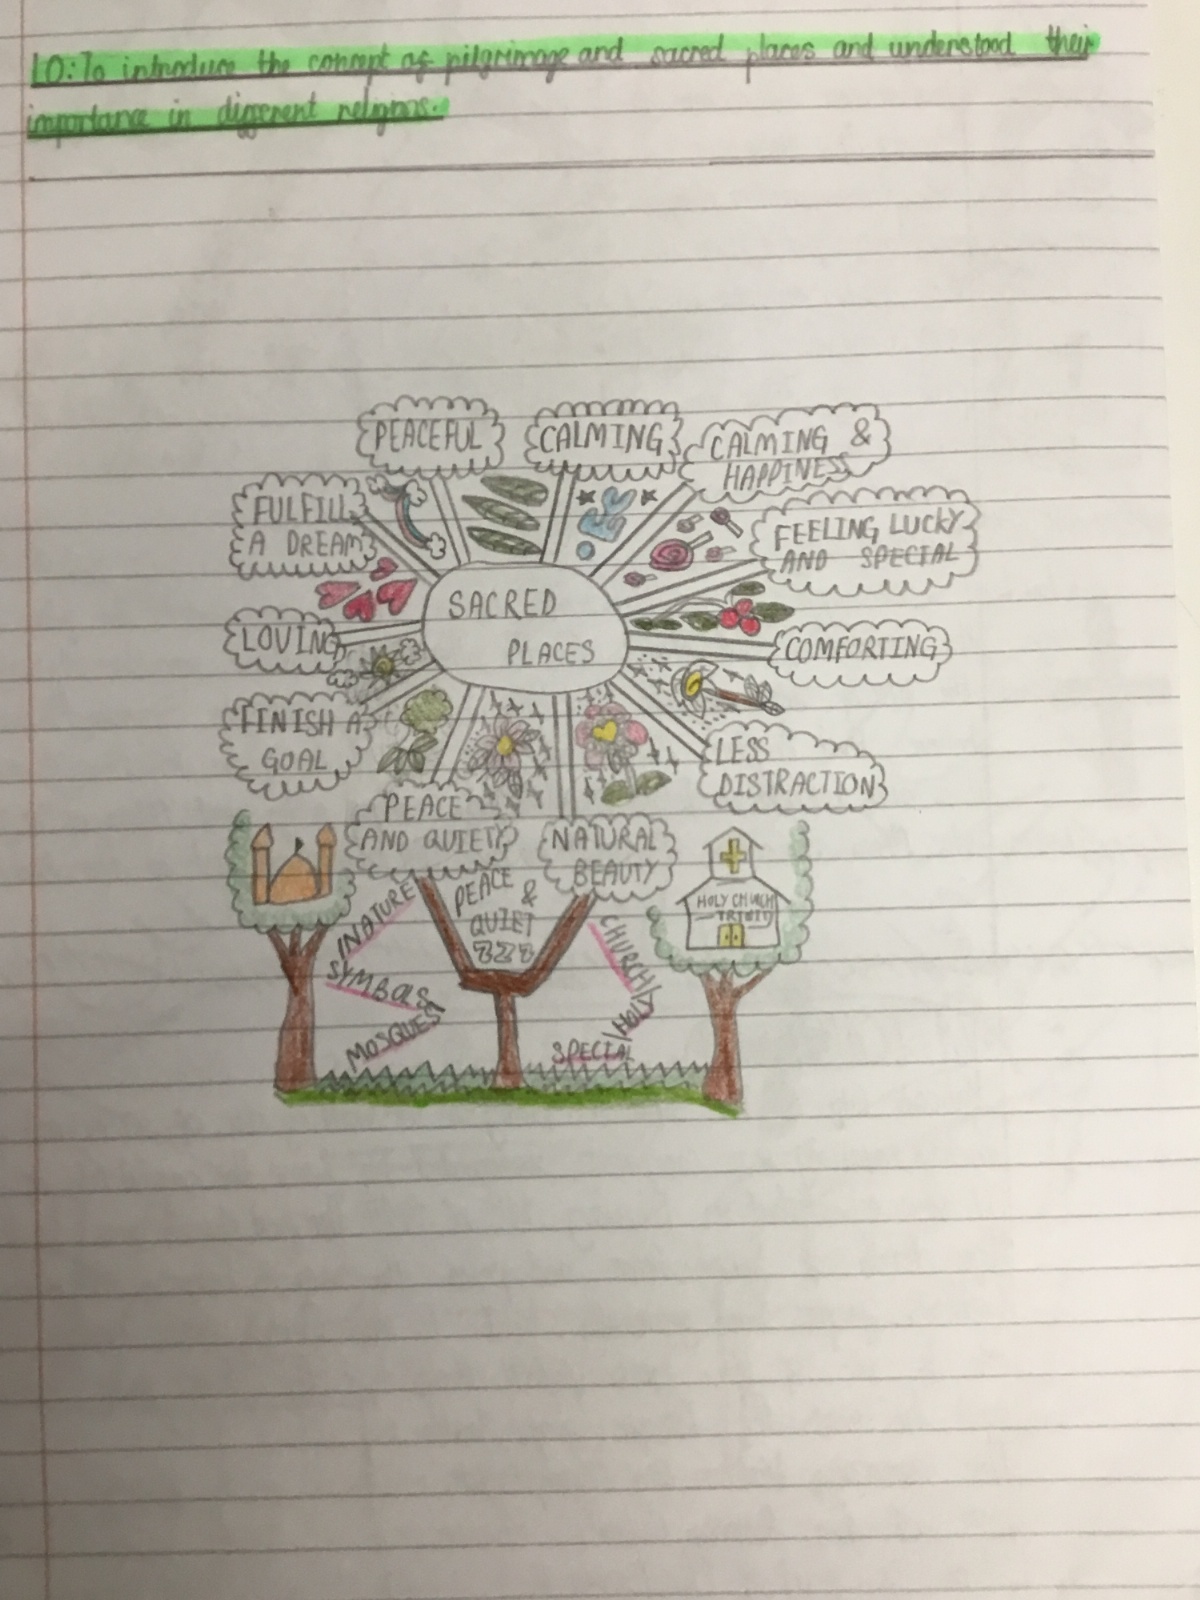 LO: To introduce the concept of pilgrimage and sacred places and understood their
importance in different religions.
PEACEFUL
CALMING
CALMING &
HAPPINESS
FULFILL
A DREAM
FEELING LUCKY
AND SPECIAL
SACRED
PLACES
LOVING
COMFORTING
FINISH A
GOAL
LESS
DISTRACTION
PEACE
AND QUIETY
NATURAL
BEAUTY
HOLY CHURCH
NATURE
PEACE
&
QUIET
ZZZ
CHURCH
SYMBOLS
HOLY
MOSQUES
SPECIAL